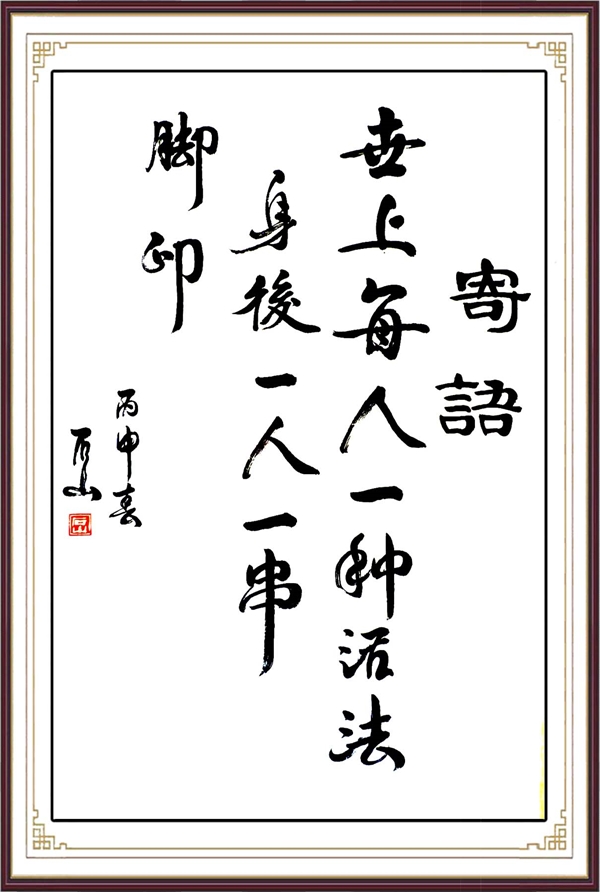 寄語
世上每人一种活法
身後一人一串
脚印
丙申春
石山
石山